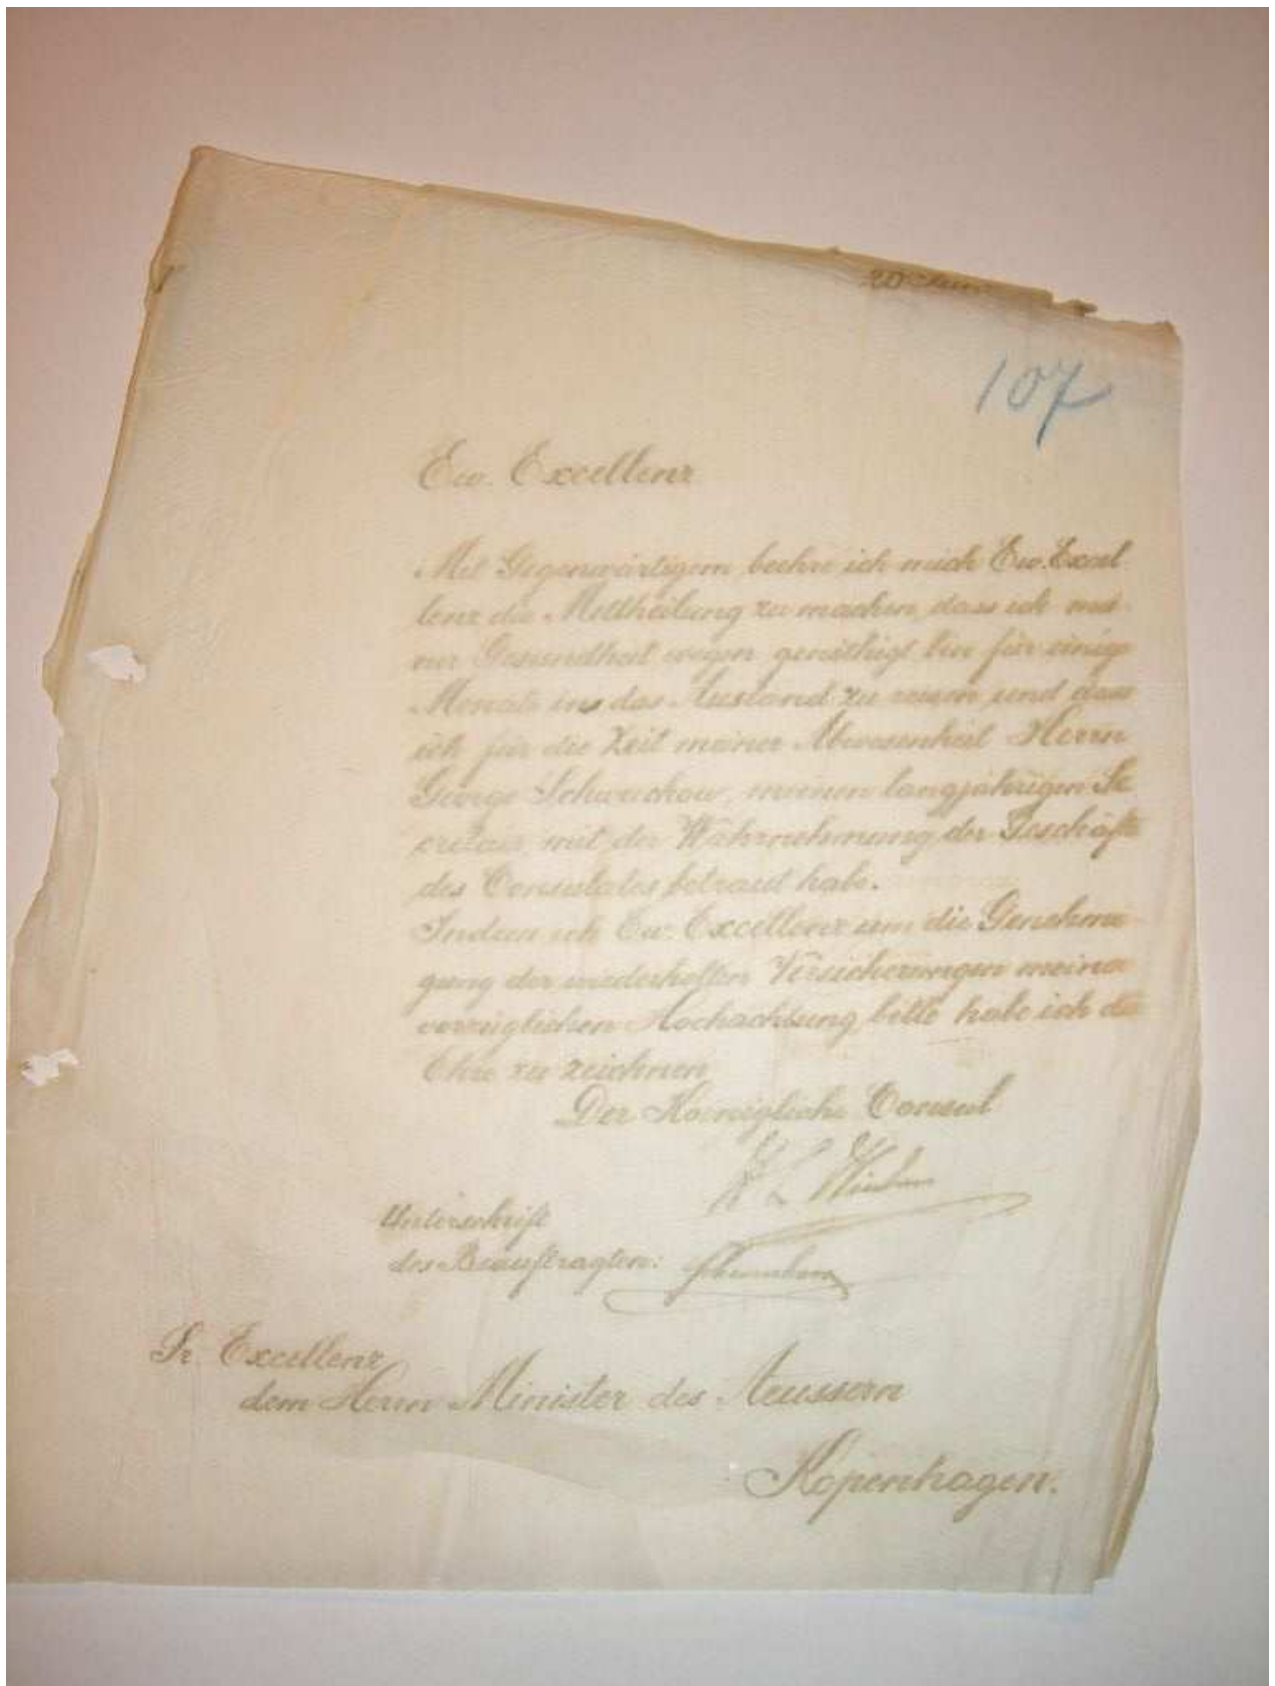 20
107
Ew. Excellenz
Mit Gegenwärtigem beehre ich mich Ew. Excel
lenz die Mittheilung zu machen, dass ich mei
ner Gesundheit wegen genöthigt bin für einige
Monate in das Ausland zu reisen und dass
ich für die Zeit meiner Abwesenheit Herrn
George Schwuchow, meinen langjährigen Se
cretair mit der Wahrnehmung der Geschäfte
des Consulates betraut habe.
Indem ich Ew. Excellenz um die Genehmi
gung der wiederholten Versicherungen meiner
vorzüglichen Hochachtung bitte habe ich die
Ehre zu zeichnen
Der Koenigliche Consul
Unterschrift
des Beauftragten:
Sr. Excellenz
dem Herrn Minister des Aeussern
Kopenhagen.